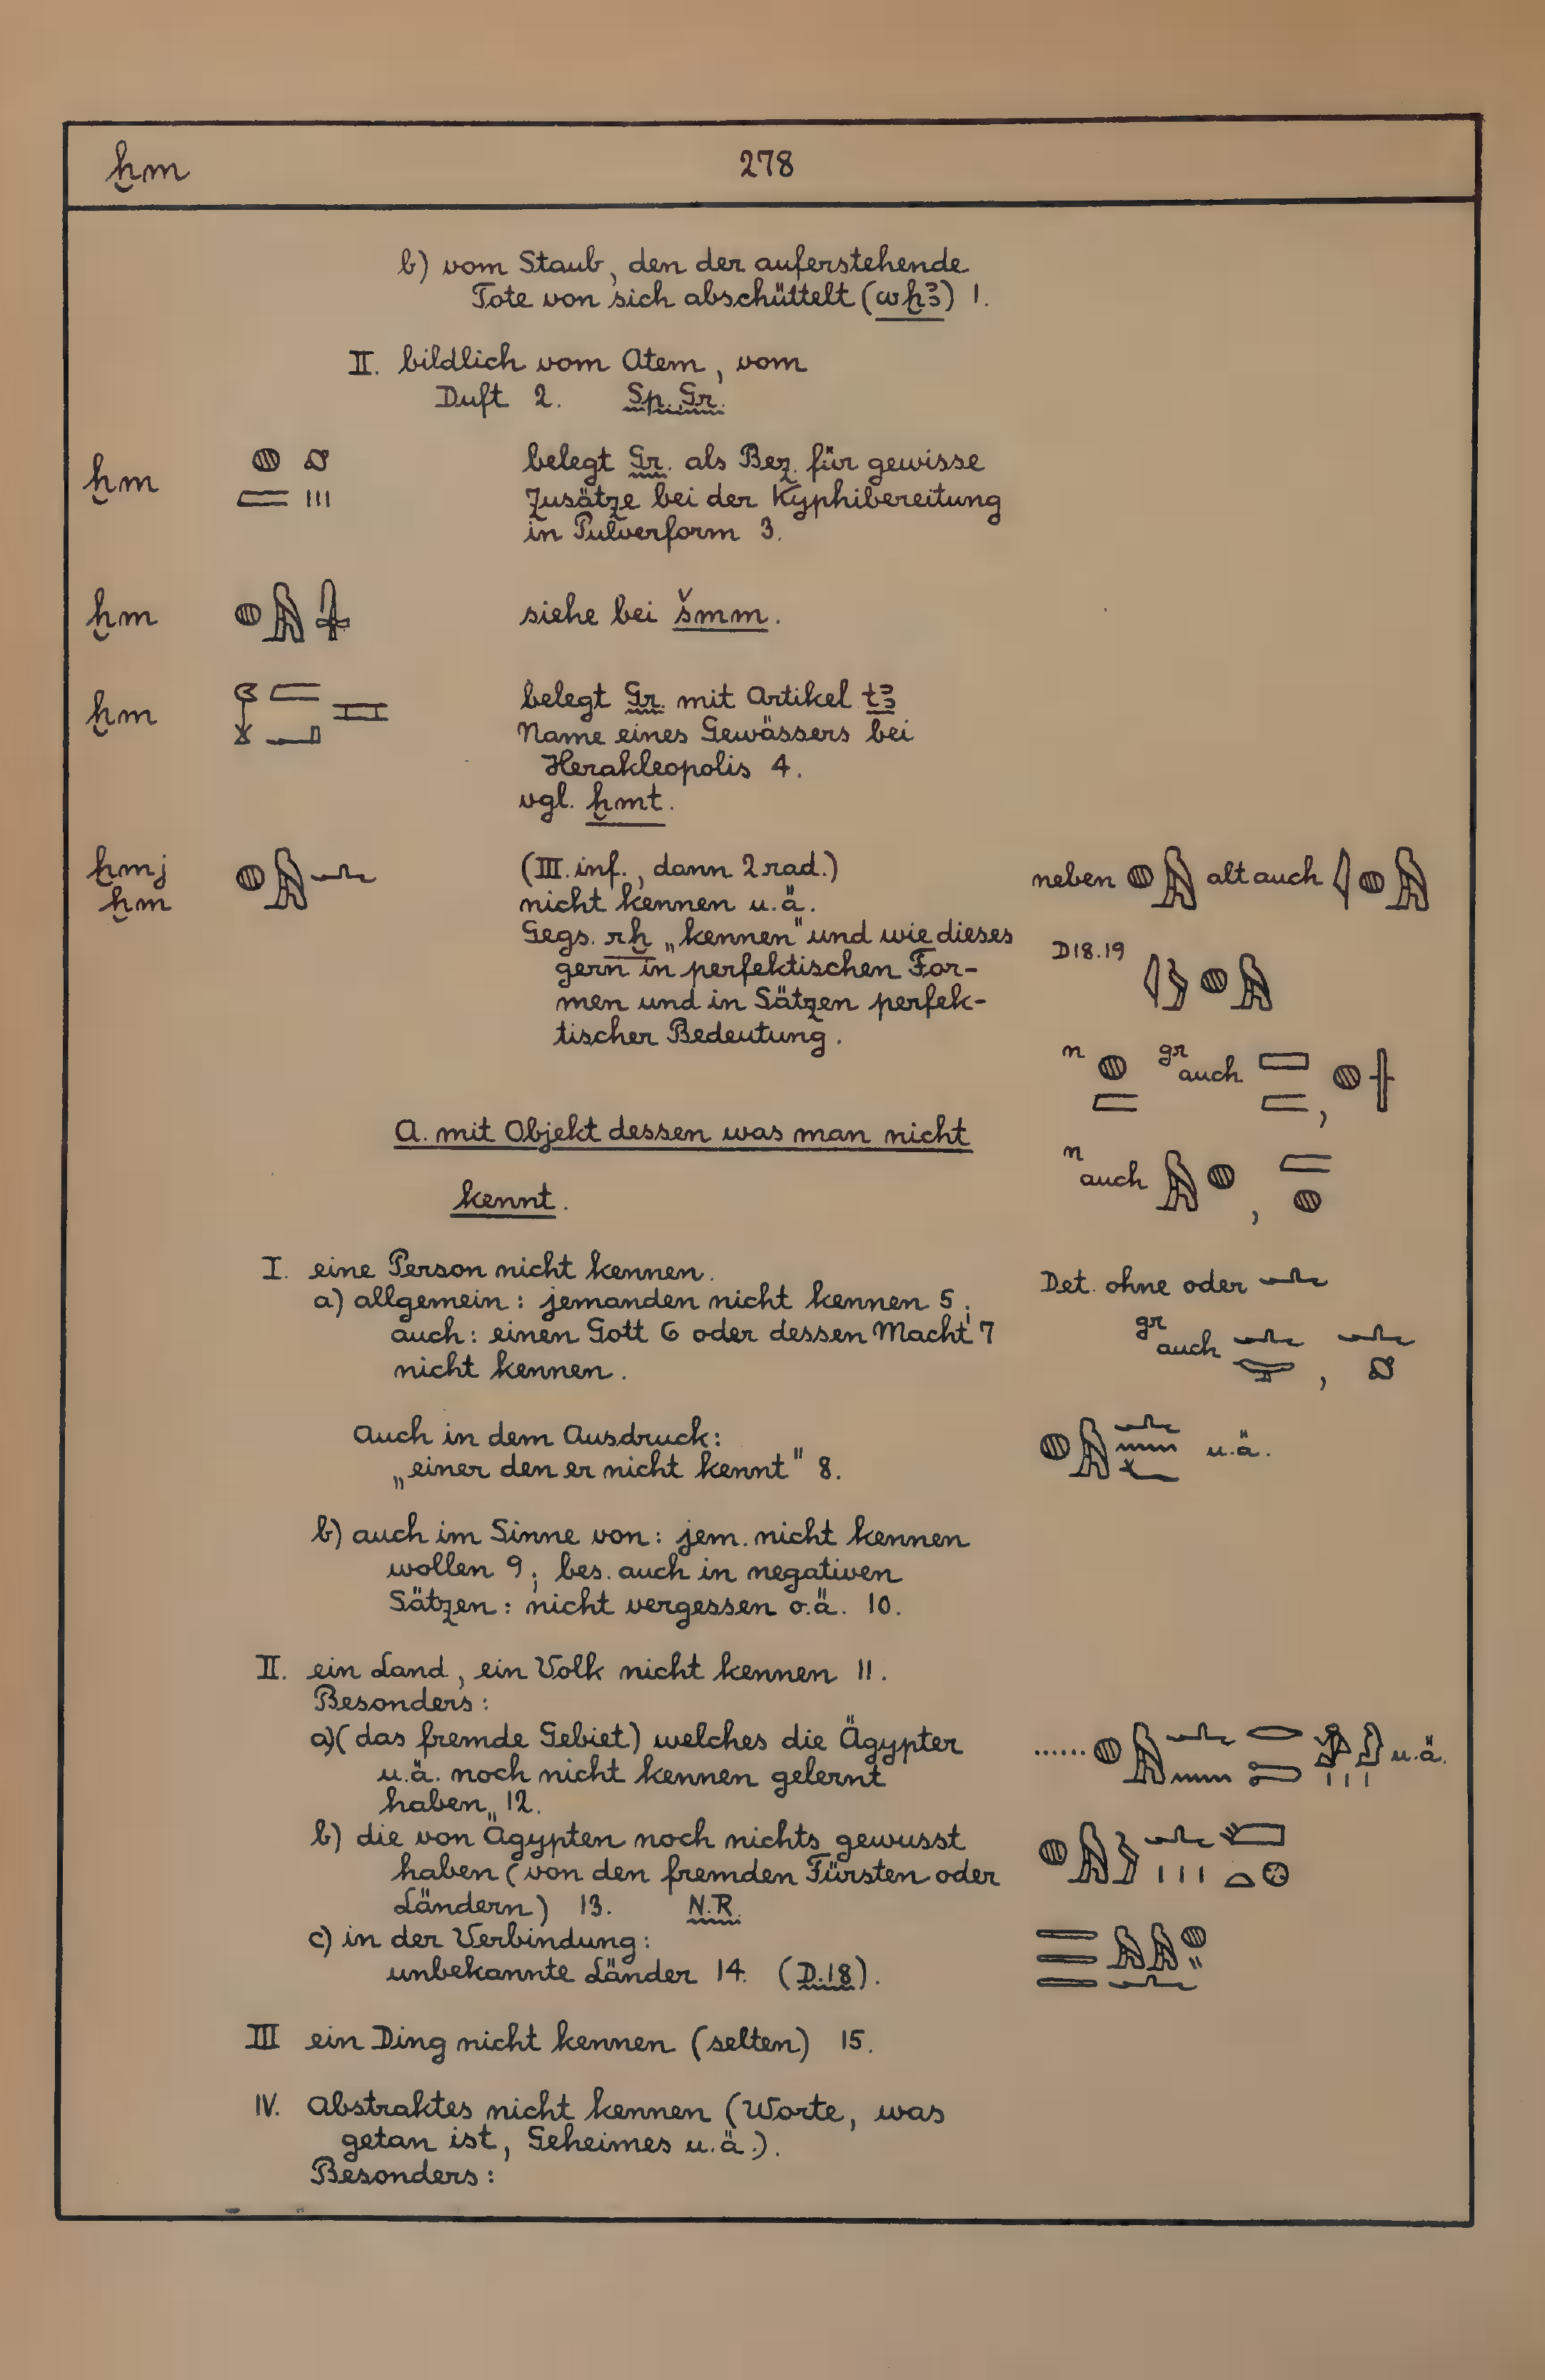 ḫm 278
b) vom Staub, den der auferstehende
Tote von sich abschüttelt (wḫꜣ) 1.
II. bildlich vom Atem, vom
Duft 2. Sp. Gr.
ḫm belegt Gr. als Bez. für gewisse
Zusätze bei der Kyphibereitung
in Pulverform 3.
ḫm siehe bei šmm.
ḫm belegt Gr. mit Artikel tꜣ
Name eines Gewässers bei
Herakleopolis 4.
vgl. ḫmt.
ḫmj (III. inf., dann 2 rad.) neben alt auch
ḫm nicht kennen u.ä.
Gegs. rḫ „kennen" und wie dieses D18.19
gern in perfektischen For-
men und in Sätzen perfek-
tischer Bedeutung.
n gr auch ,
A. mit Objekt dessen was man nicht
n auch ,
kennt.
I. eine Person nicht kennen. Det. ohne oder
a) allgemein: jemanden nicht kennen 5;
auch: einen Gott 6 oder dessen Macht 7 gr auch ,
nicht kennen.
Auch in dem Ausdruck: u.ä.
„einer den er nicht kennt" 8.
b) auch im Sinne von: jem. nicht kennen
wollen 9; bes. auch in negativen
Sätzen: nicht vergessen o.ä. 10.
II. ein Land, ein Volk nicht kennen 11.
Besonders:
a) (das fremde Gebiet) welches die Ägypter ...... u.ä.
u.ä. noch nicht kennen gelernt
haben 12.
b) die von Ägypten noch nichts gewusst
haben (von den fremden Fürsten oder
Ländern) 13. N.R.
c) in der Verbindung:
unbekannte Länder 14. (D.18).
III ein Ding nicht kennen (selten) 15.
IV. Abstraktes nicht kennen (Worte, was
getan ist, Geheimes u.ä.).
Besonders: